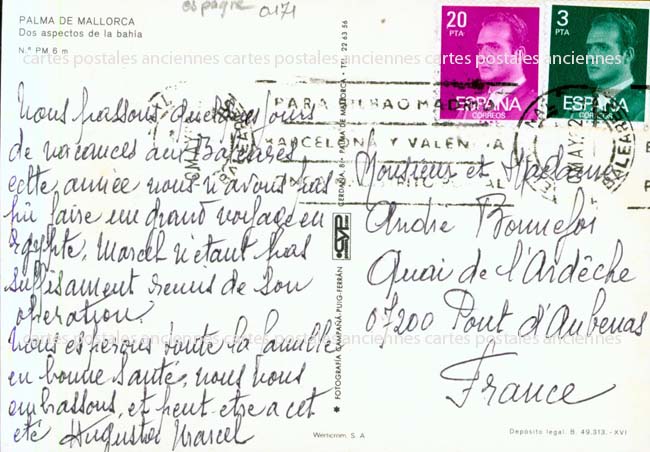 espagne 0171
PALMA DE MALLORCA
Dos aspectos de la bahía
N.º PM 6 m
20
PTA
ESPAÑA
CORREOS
3
PTA
ESPAÑA
CORREOS
PARA BILBAO MADRID
BARCELONA Y VALENCIA
POSTAL
MAY
BALEARES
cartes postales anciennes cartes postales anciennes cartes postales anciennes
Nous passons quelques jours
de vacances aux Baléares
cette année nous n'avons pas
pu faire un grand voyage en
Egypte, Marcel n'étant pas
suffisament remis de son
opération
Nous espérons toute la famille
en bonne santé, nous vous
embrassons, et peut-etre a cet
été Augusta Marcel
CERDAÑA, 8 - PALMA DE MALLORCA - TEL. 22 63 56
FOTOGRAFÍA CAMPAÑÁ-PUIG-FERRÁN
Monsieur et Madame
Andre Bonnefoi
Quai de l'Ardèche
07200 Pont d'Aubenas
France
cartes postales anciennes cartes postales anciennes cartes postales anciennes
Werticrom, S. A.
Depósito legal. B. 49.313 - XVI